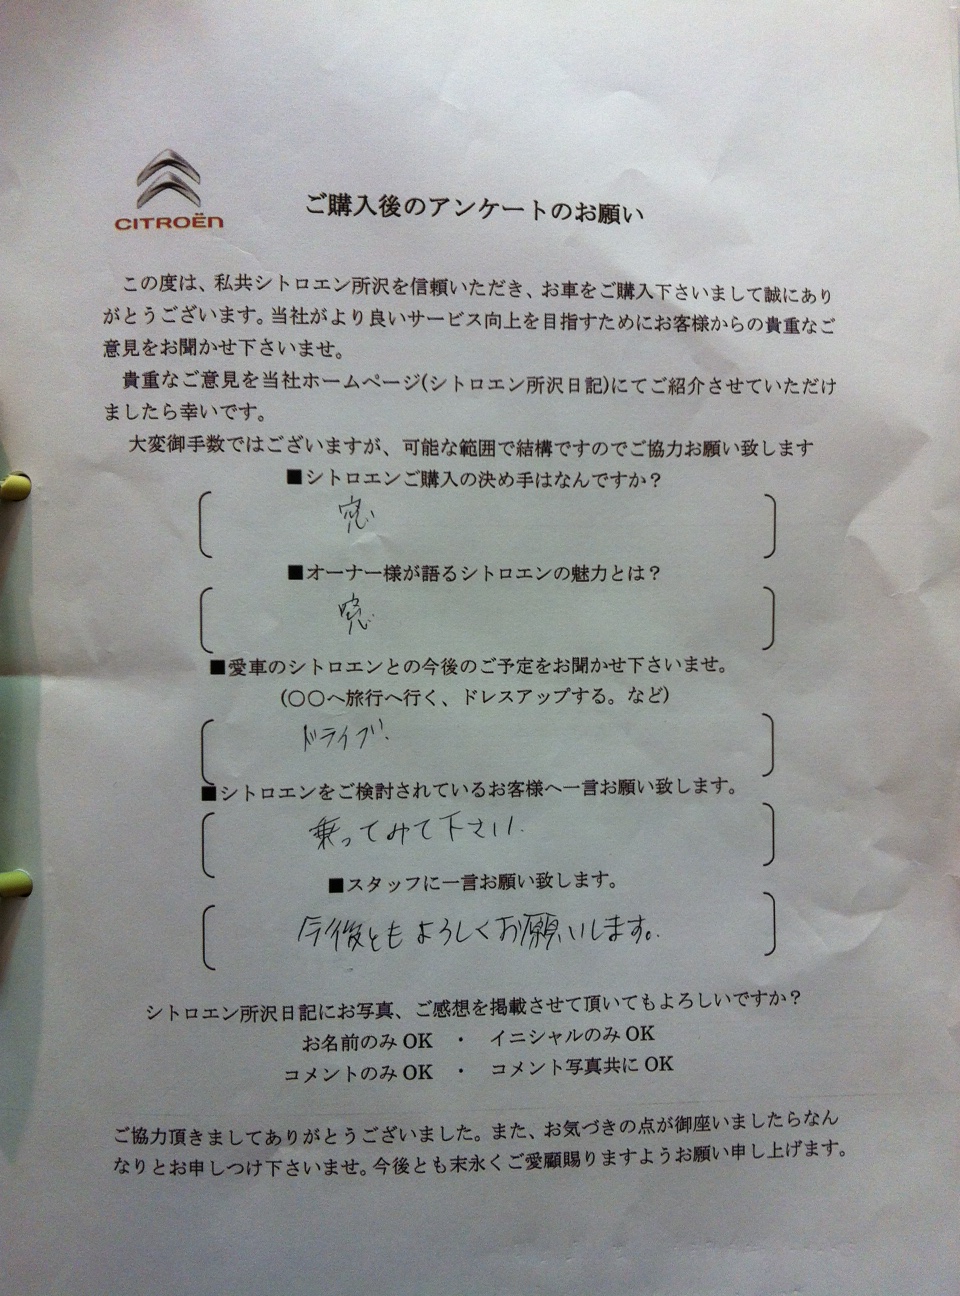 CITROËN
ご購入後のアンケートのお願い
この度は、私共シトロエン所沢を信頼いただき、お車をご購入下さいまして誠にあり
がとうございます。当社がより良いサービス向上を目指すためにお客様からの貴重なご
意見をお聞かせ下さいませ。
貴重なご意見を当社ホームページ(シトロエン所沢日記)にてご紹介させていただけ
ましたら幸いです。
大変御手数ではございますが、可能な範囲で結構ですのでご協力お願い致します
■シトロエンご購入の決め手はなんですか？
窓
■オーナー様が語るシトロエンの魅力とは？
窓
■愛車のシトロエンとの今後のご予定をお聞かせ下さいませ。
(〇〇へ旅行へ行く、ドレスアップする。など)
ドライブ.
■シトロエンをご検討されているお客様へ一言お願い致します。
乗ってみて下さい.
■スタッフに一言お願い致します。
今後ともよろしくお願いします。
シトロエン所沢日記にお写真、ご感想を掲載させて頂いてもよろしいですか？
お名前のみ OK ・ イニシャルのみ OK
コメントのみ OK ・ コメント写真共に OK
ご協力頂きましてありがとうございました。また、お気づきの点が御座いましたらなん
なりとお申しつけ下さいませ。今後とも末永くご愛顧賜りますようお願い申し上げます。